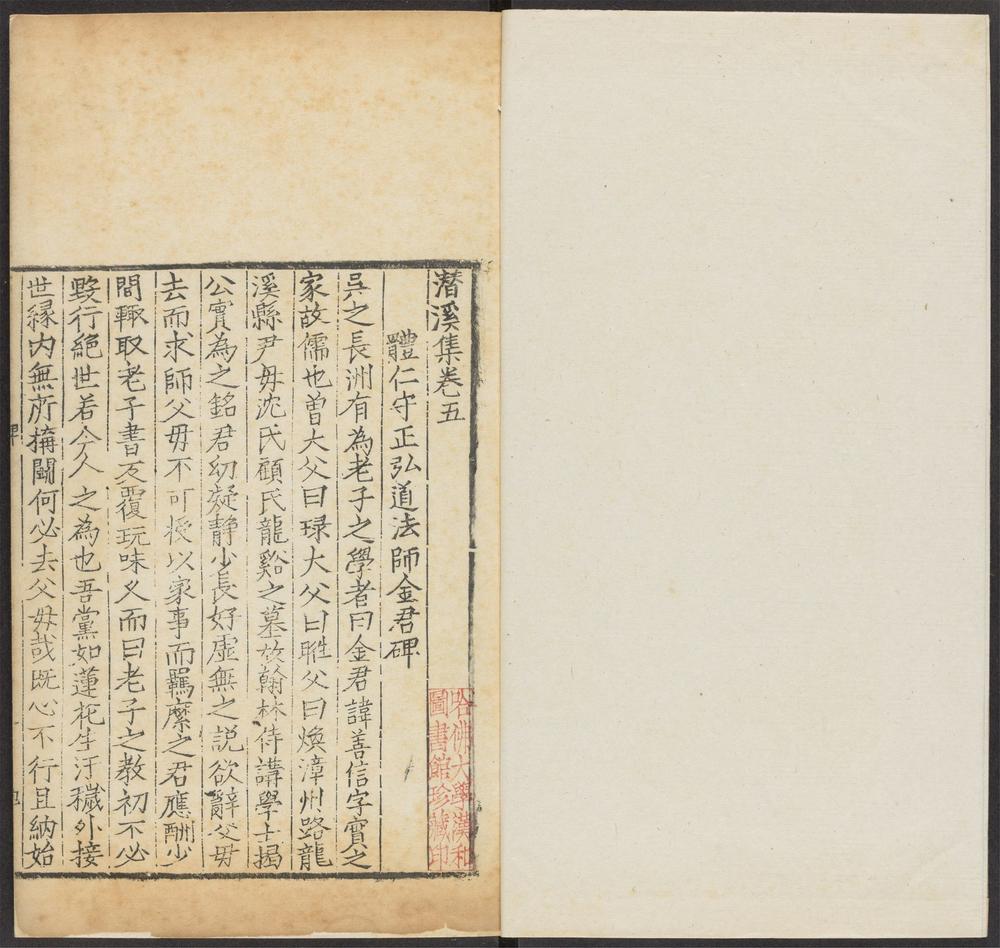 潛溪集卷五
體仁守正弘道法師金君碑
吳之長洲有為老子之學者曰金君諱善信字實之
家故儒也曾大父曰琭大父曰甠父曰煥漳州路龍
溪縣尹毋沈氏顧氏龍谿之墓故翰林侍講學士揭
公實為之銘君幼凝静少長好虛無之説欲辭父毋
去而求師父毋不可授以家事而羈縻之君應酬少
間輙取老子書反覆玩味久而曰老子之敎初不必
斁行絶世若今人之為也吾黨如蓮花生汙穢外接
世縁内無所搆鬭何必去父毋㢤既心不行且納始
哈佛大學漢和
圖書館珍藏印